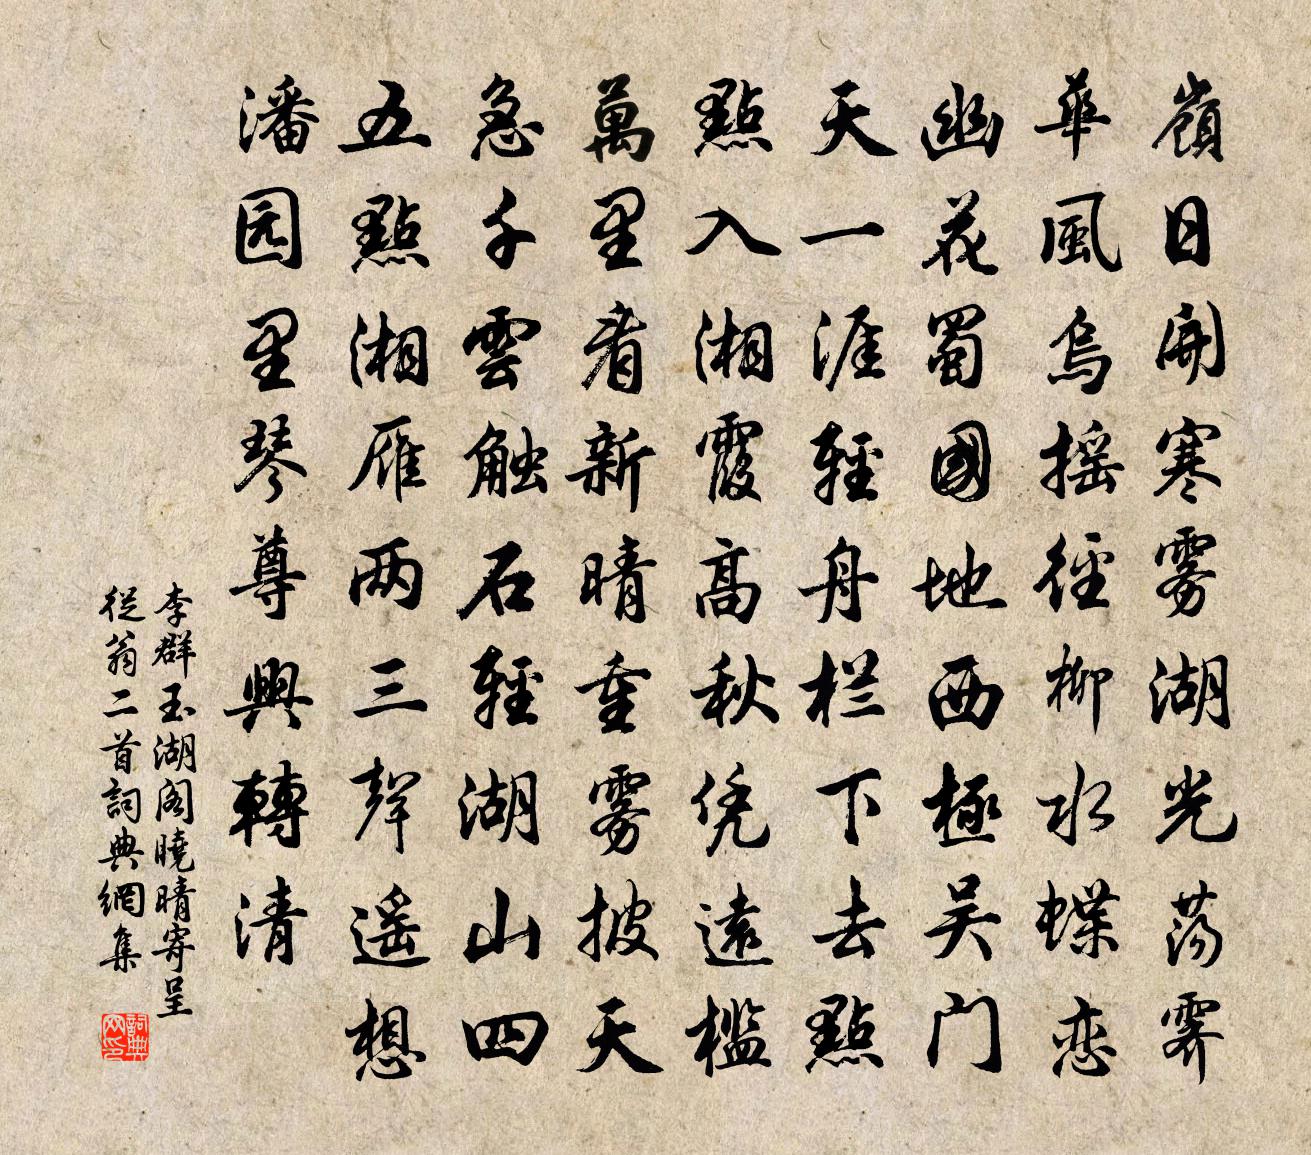 嶺日開寒雾湖光荡霁
華風烏摇徑柳水蝶恋
幽花蜀國地西極吴门
天一涯輕舟栏下去點
點入湘霞高秋凭遠槛
萬里看新晴重雾披天
急千雲触石輕湖山四
五點湘雁两三聲遥想
潘园里琴尊興轉清
李群玉湖阁曉晴寄呈
從翁二首詞典網集
詞典网印